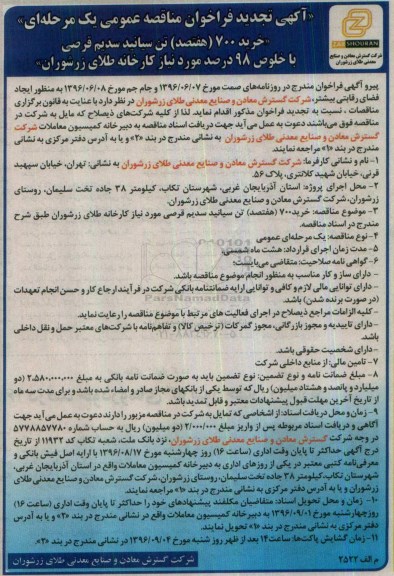 «آگهی تجدید فراخوان مناقصه عمومی یک مرحله‌ای»
«خرید ۷۰۰ (هفتصد) تن سیانید سدیم قرصی
با خلوص ۹۸ درصد مورد نیاز کارخانه طلای زرشوران»
ZARSHOURAN
شرکت گسترش معادن و صنایع
معدنی طلای زرشوران
پیرو آگهی فراخوان مندرج در روزنامه‌های صمت مورخ ۱۳۹۶/۰۶/۰۷ و جام جم مورخ ۱۳۹۶/۰۶/۰۸ به منظور ایجاد
فضای رقابتی بیشتر، شرکت گسترش معادن و صنایع معدنی طلای زرشوران در نظر دارد با عنایت به قانون برگزاری
مناقصات ، نسبت به تجدید فراخوان مذکور اقدام نماید. لذا از کلیه شرکت‌های ذیصلاح که مایل به شرکت در
مناقصه فوق می‌باشند دعوت به عمل می‌آید جهت دریافت اسناد مناقصه به دبیرخانه کمیسیون معاملات شرکت
گسترش معادن و صنایع معدنی طلای زرشوران به نشانی مندرج در بند «۲» و یا به آدرس دفتر مرکزی به نشانی
مندرج در بند «۱» مراجعه نمایند.
۱- نام و نشانی کارفرما: شرکت گسترش معادن و صنایع معدنی طلای زرشوران به نشانی: تهران، خیابان سپهبد
قرنی، خیابان شهید کلانتری، پلاک ۵۶.
۲- محل اجرای پروژه: استان آذربایجان غربی، شهرستان تکاب، کیلومتر ۳۸ جاده تخت سلیمان، روستای
زرشوران، شرکت گسترش معادن و صنایع معدنی طلای زرشوران.
۳- موضوع مناقصه: خرید ۷۰۰ (هفتصد) تن سیانید سدیم قرصی مورد نیاز کارخانه طلای زرشوران طبق شرح
مندرج در اسناد مناقصه.
۴- نوع مناقصه: یک مرحله‌ای عمومی
۵- مدت زمان اجرای قرارداد: هشت ماه شمسی
۶- گواهی نامه صلاحیت: متقاضی می‌بایست:
- دارای ساز و کار مناسب به منظور انجام موضوع مناقصه باشد.
- دارای توانایی مالی لازم و کافی و توانایی ارایه ضمانتنامه بانکی شرکت در فرآیند ارجاع کار و حسن انجام تعهدات
(در صورت برنده شدن) باشد.
- کلیه الزامات مراجع ذیصلاح در اجرای فعالیت های مرتبط با موضوع مناقصه را رعایت نماید.
- دارای تاییدیه و مجوز بازرگانی، مجوز گمرکات (ترخیص کالا) و تفاهم‌نامه با شرکت‌های معتبر حمل و نقل داخلی
باشد.
- دارای شخصیت حقوقی باشد.
۷- تامین مالی: از منابع داخلی شرکت
۸- مبلغ ضمانت نامه و نوع تضمین: نوع تضمین باید به صورت ضمانت نامه بانکی به مبلغ ۲،۵۸۰،۰۰۰،۰۰۰ (دو
میلیارد و پانصد و هشتاد میلیون) ریال که توسط یکی از بانکهای مجاز صادر و امضاء شده باشد و برای مدت سه ماه
از تاریخ آخرین مهلت قبول پیشنهادات معتبر و قابل تمدید باشد.
۹- زمان و محل دریافت اسناد: از اشخاصی که تمایل به شرکت در مناقصه مزبور را دارند دعوت به عمل می آید جهت
آگاهی و دریافت اسناد مربوطه پس از واریز مبلغ ۲/۰۰۰/۰۰۰ (دو میلیون) ریال به حساب شماره ۵۷۷۸۸۵۷۷۸۰
در وجه شرکت گسترش معادن و صنایع معدنی طلای زرشوران، نزد بانک ملت، شعبه تکاب کد ۱۱۹۳۲ از تاریخ
درج آگهی حداکثر تا پایان وقت اداری (ساعت ۱۶) روز چهارشنبه مورخ ۱۳۹۶/۰۸/۱۷ با ارایه اصل فیش بانکی و
معرفی‌نامه کتبی معتبر در یکی از روزهای اداری به دبیرخانه کمیسیون معاملات واقع در استان آذربایجان غربی،
شهرستان تکاب، کیلومتر ۳۸ جاده تخت سلیمان، روستای زرشوران، شرکت گسترش معادن و صنایع معدنی طلای
زرشوران و یا به آدرس دفتر مرکزی به نشانی مندرج در بند «۱» مراجعه نمایند.
۱۰- زمان و محل تحویل اسناد: متقاضیان مکلفند پیشنهادهای خود را حداکثر تا پایان وقت اداری (ساعت ۱۶)
روز چهارشنبه مورخ ۱۳۹۶/۰۹/۰۱ به دبیرخانه کمیسیون معاملات واقع در نشانی مندرج در بند «۲» و یا به آدرس
دفتر مرکزی به نشانی مندرج در بند «۱» تحویل نمایند.
۱۱- زمان گشایش پاکت‌ها: ساعت ۱۴ بعد از ظهر روز شنبه مورخ ۱۳۹۶/۰۹/۰۴ در نشانی مندرج در بند «۲».
شرکت گسترش معادن و صنایع معدنی طلای زرشوران
م الف ۲۵۲۲